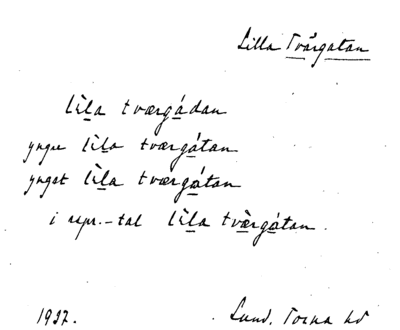 Lilla Tvärgatan
lìla tværgádan
yngre lìla tværgátan
yngst lìla tværgátan
i repr.-tal lìla tværgátan.
1937. Lund, Torna hd